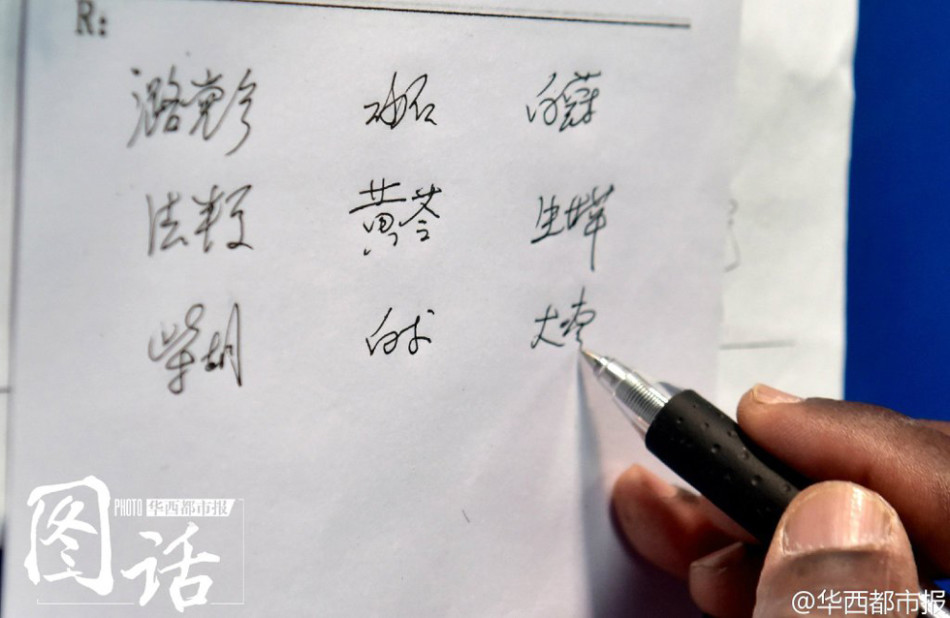 R:
潞党参
法半夏 黄芩
柴胡 白术 大枣
图话
PHOTO 华西都市报
@华西都市报